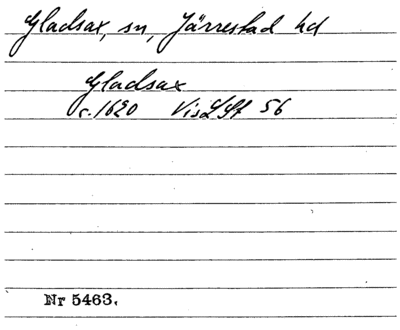 Gladsax, sn, Järrestad hd
Gladsax
c. 1620 VisLSt 56
Nr 5463.